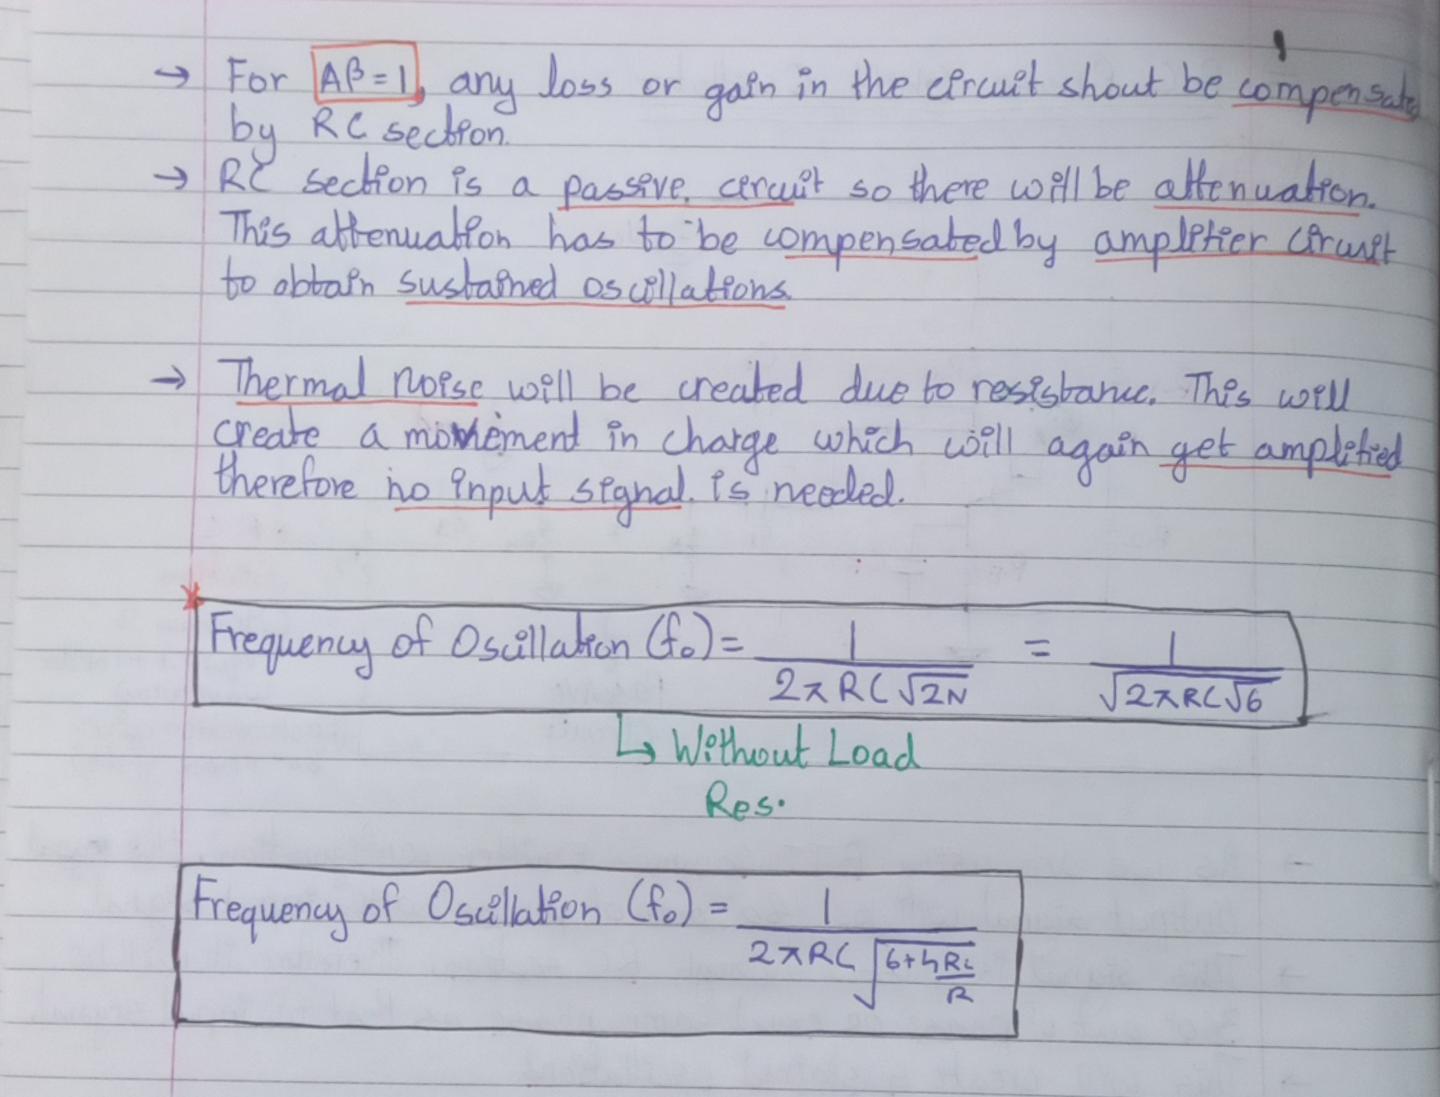 → For Aβ=1, any loss or gain in the circuit shout be compensate
by RC section.
→ RC section is a passive circuit so there will be attenuation.
This attenuation has to be compensated by amplifier circuit
to obtain sustained oscillations.
→ Thermal noise will be created due to resistance. This will
create a movement in charge which will again get amplified
therefore no input signal is needed.
Frequency of Oscillation (f₀) = 1 / 2πRC√2N = 1 / √2πRC√6
↳ Without Load
Res.
Frequency of Oscillation (f₀) = 1 / 2πRC √(6+4Rc/R)